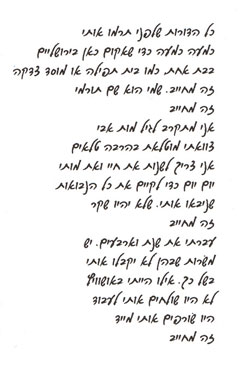 כל הדורות שלפני תרמו אותי
כמעה כמעה כדי שאקום כאן בירושליים
בבת אחת, כמו בית תפילה או מוסד צדקה
זה מחייב. שמי הוא שם תורמי
זה מחייב
אני מתקרב לגיל מות אבי
צוואתי מוטלאת בהרבה טלאים
אני צריך לשנות את חיי ואת מותי
יום יום כדי לקיים את כל הנבואות
שניבאו אותי. שלא יהיו שקר
זה מחייב
עברתי את שנת וארבעים. יש
משרות שבהן לא יקבלו אותי
בשל כך. אילו הייתי באושוויץ
לא היו שולחים אותי לעבוד
היו שורפים אותי מייד
זה מחייב